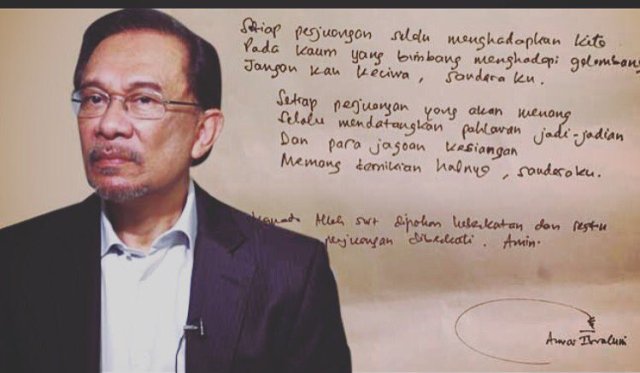 Setiap perjuangan selalu menghadapkan kita
Pada kaum yang bimbang menghadapi gelombang
Jangan kau keciwa, saudaraku.
Setiap perjuangan yang akan menang
Selalu mendatangkan pahlawan jadi-jadian
Dan para jagoan kesiangan
Memang demikian halnya, saudaraku.
Kepada Allah swt dipohon keberkatan dan restu
perjuangan diberkati. Amin.
Anwar Ibrahim